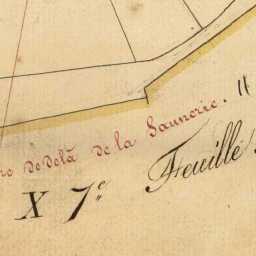 de delà de la Saunerie.
X 7.e Feuille